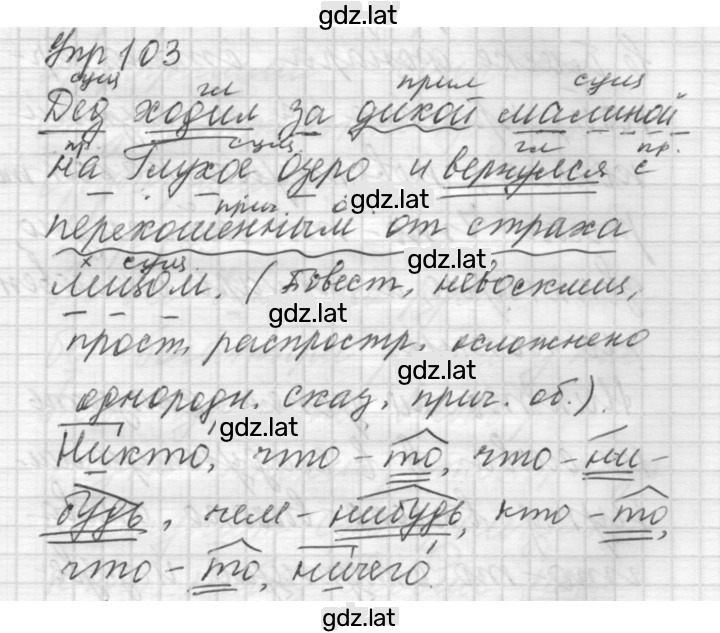 gdz.lat
Упр 103
сущ гл прил сущ
Дед ходил за дикой малиной
пр. сущ гл пр.
на Глухое озеро и вернулся с
gdz.lat
прич. о.
перекошенным от страха
gdz.lat
х сущ
лицом. (Повест., невосклиц,
gdz.lat
прост, распростр, осложнено
gdz.lat
однородн. сказ, прич. об.).
gdz.lat
Никто, что-то, что-ни-
будь, чем-нибудь, кто-то,
gdz.lat
что-то, ничего.
gdz.lat